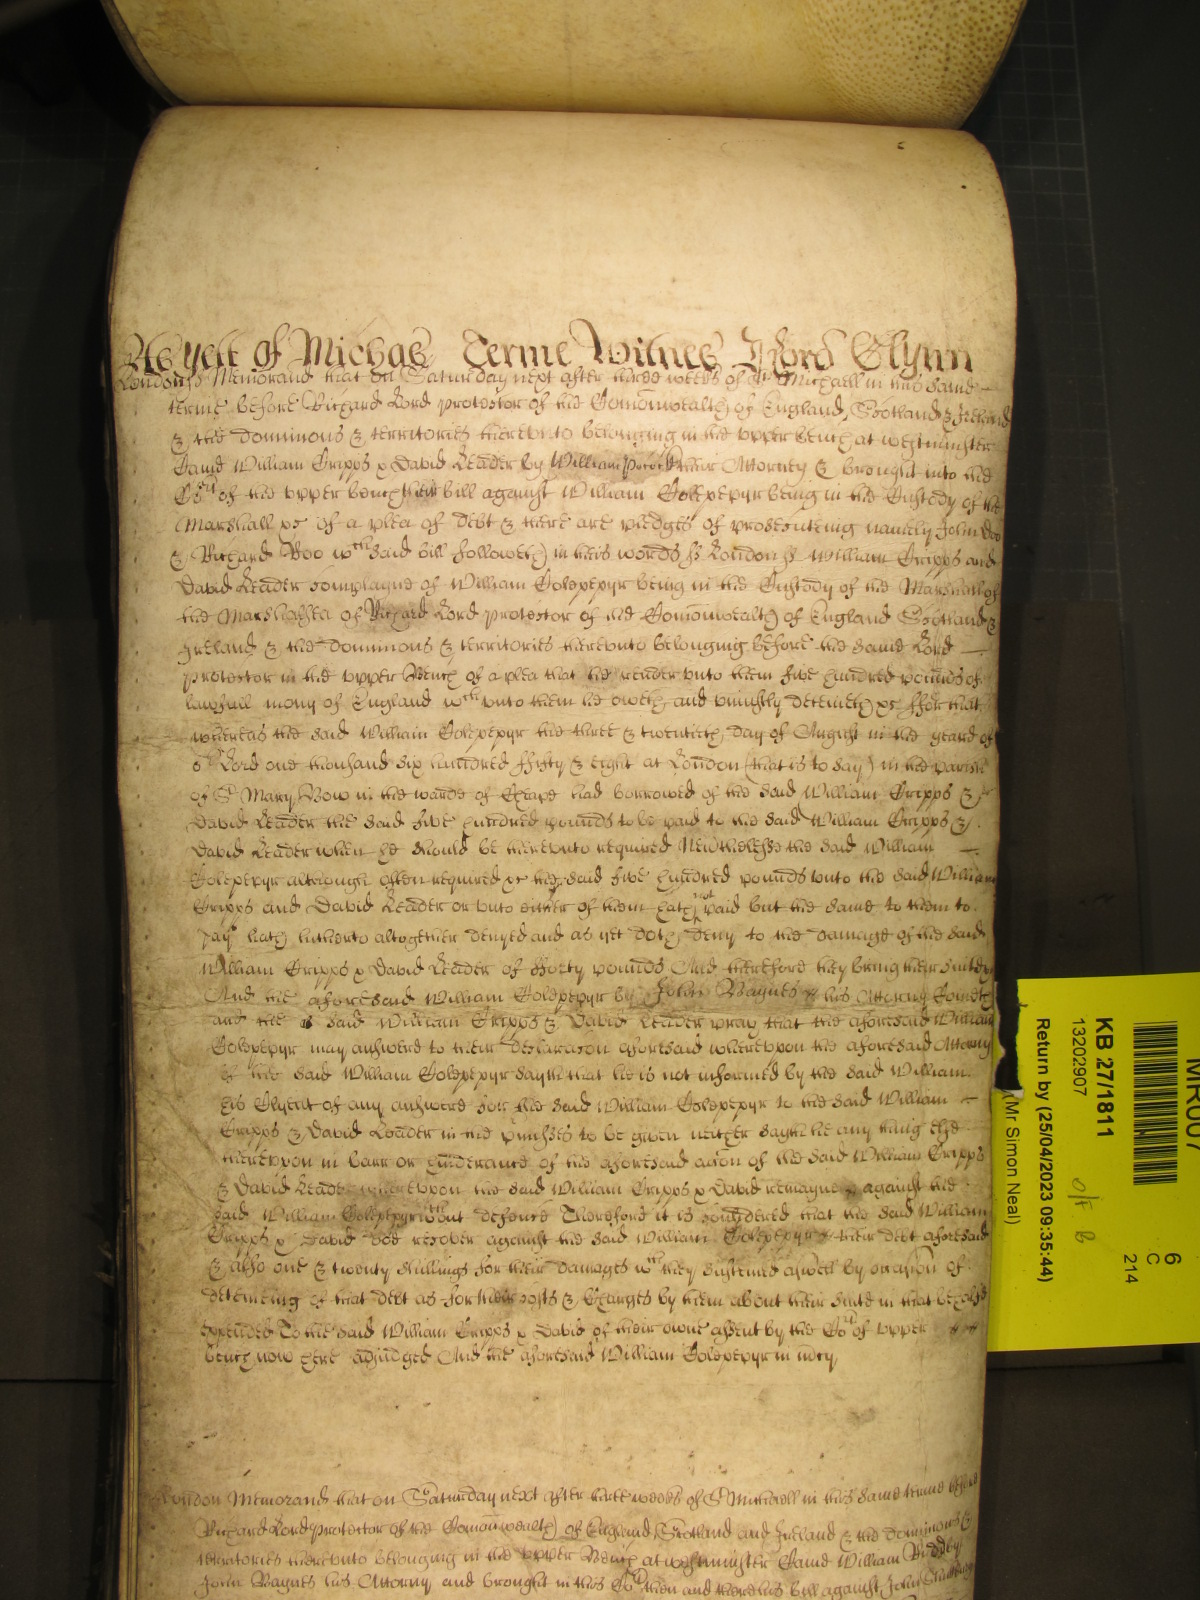 As yett of Michas Terme Witnes Lord Glynn
London ss Memorand that on Saturday next after three weeks of St Michaell in this same
terme before Richard Lord protector of the Comonwealth of England, Scotland & Ireland
& the dominions & territories thereunto belonging in the upper bench at westminster
Came William Cripps & David Leader by William their Attorney & brought into the
Cort of the upper bench their bill against William Colepepyr being in the Custody of the
Marshall &c of a plea of debt & there are pledges of prosecuteing namely John Doo
& Richard Roo wch said bill followeth in theis words ss London ss William Cripps and
David Leader complayne of William Colepepyr being in the Custody of the Marshall of
the Marshalsea of Richard Lord protector of the Comonwealth of England Scotland &
Ireland & the dominions & territories thereunto belonging before the same Lord
protector in the upper Bench of a plea that he render unto them five hundred pounds of
lawfull mony of England wch unto them he oweth and uniustly deteineth &c ffor that
whereas the said William Colepepyr the three & twentieth day of August in the yeare of
or Lord one thousand six hundred fifty & eight at London (that is to say) in the parish
of St Mary Bow in the warde of Cheape had borrowed of the said William Cripps &
David Leader the said five hundred pounds to be paid to the said William Cripps &
David Leader when he should be thereunto required Nevthelesse the said William
Colepepyr although often required &c the said five hundred pounds unto the said William
Cripps and David Leader or unto either of them hath not paid but the same to them to
pay hath hitherto altogether denyed and as yet doth deny to the damage of the said
William Cripps & David Leader of fforty pounds And therefore they bring their suite &c
And the aforesaid William Colepepyr by John Baynes his Attorny Cometh
and the said William Cripps & David Leader pray that the aforesaid William
Colepepyr may answere to their declaracon aforesaid whereupon the aforesaid Attorny
of the said William Colepepyr sayth that he is not informed by the said William
his Clyent of any answere for the said William Colepepyr to the said William
Cripps & David Leader in the pmisses to be given neither sayth he any thing else
thereupon in barr or hinderance of the aforesaid accon of the said William Cripps
& David Leader whereupon the said William Cripps & David remayne against the
said William Colepepyr wthout defence Therefore it is considered that the said William
Cripps & David doe recover against the said William Colepepyr their debt aforesaid
& also one & twenty shillings for their damages wch they susteined aswell by occasion of
deteineing of that debt as for their costs & charges by them about their suite in that behalfe
expended To the said William Cripps & David of their owne assent by the Cort of upper
bench now here adjudged And the aforesaid William Colepepyr in mcy
London Memorand that on Saturday next after three weeks of St Michaell in this same terme before
Richard Lord protector of the Comonwealth of England Scotland and Ireland & the dominions &
territories thereunto belonging in the upper Bench at westminster Came William by
John Baynes his Attorny and brought in this Cort then and there his bill against John
MR007
KB 27/1811
13202907
Return by (25/04/2023 09:35:44)
(Mr Simon Neal)
6
C
214